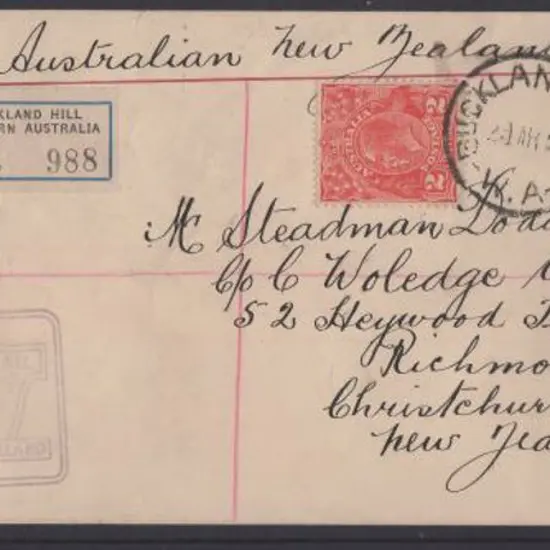 Australian New Zealan
KLAND HILL
RN AUSTRALIA
988
AUSTRALIA
2 2
BUCKLAN
W.A.
Mr Steadman Dod
C/o C Woledge
52 Heywood
Richmo
Christchur
New Zea